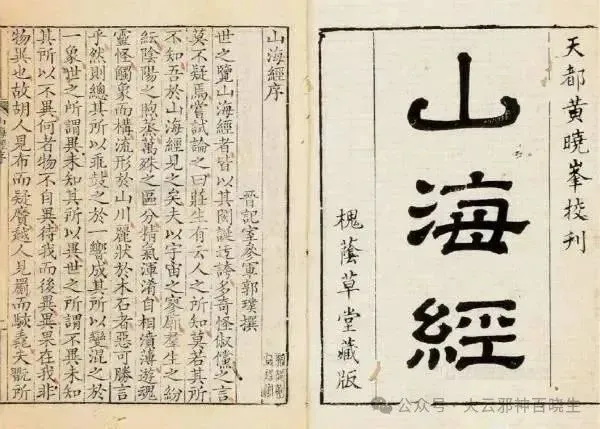 天都黄曉峯校刊
山海經
槐蔭草堂藏版
山海經序
晉記室參軍郭璞撰
世之覽山海經者皆以其閎誕迂誇多奇怪俶儻之言
莫不疑焉嘗試論之曰莊生有云人之所知莫若其所
不知吾於山海經見之矣夫以宇宙之寥廓羣生之紛
紜陰陽之煦蒸萬殊之區分精氣渾淆自相濆薄遊魂
靈怪觸象而構流形於山川麗狀於木石者惡可勝言
乎然則總其所以乖鼓之於一響成其所以變混之於
一象世之所謂異未知其所以異世之所謂不異未知
其所以不異何者物不自異待我而後異異果在我非
物異也故胡人見布而疑黂越人見罽而駭毳夫翫所
公众号·大云邪神百晓生